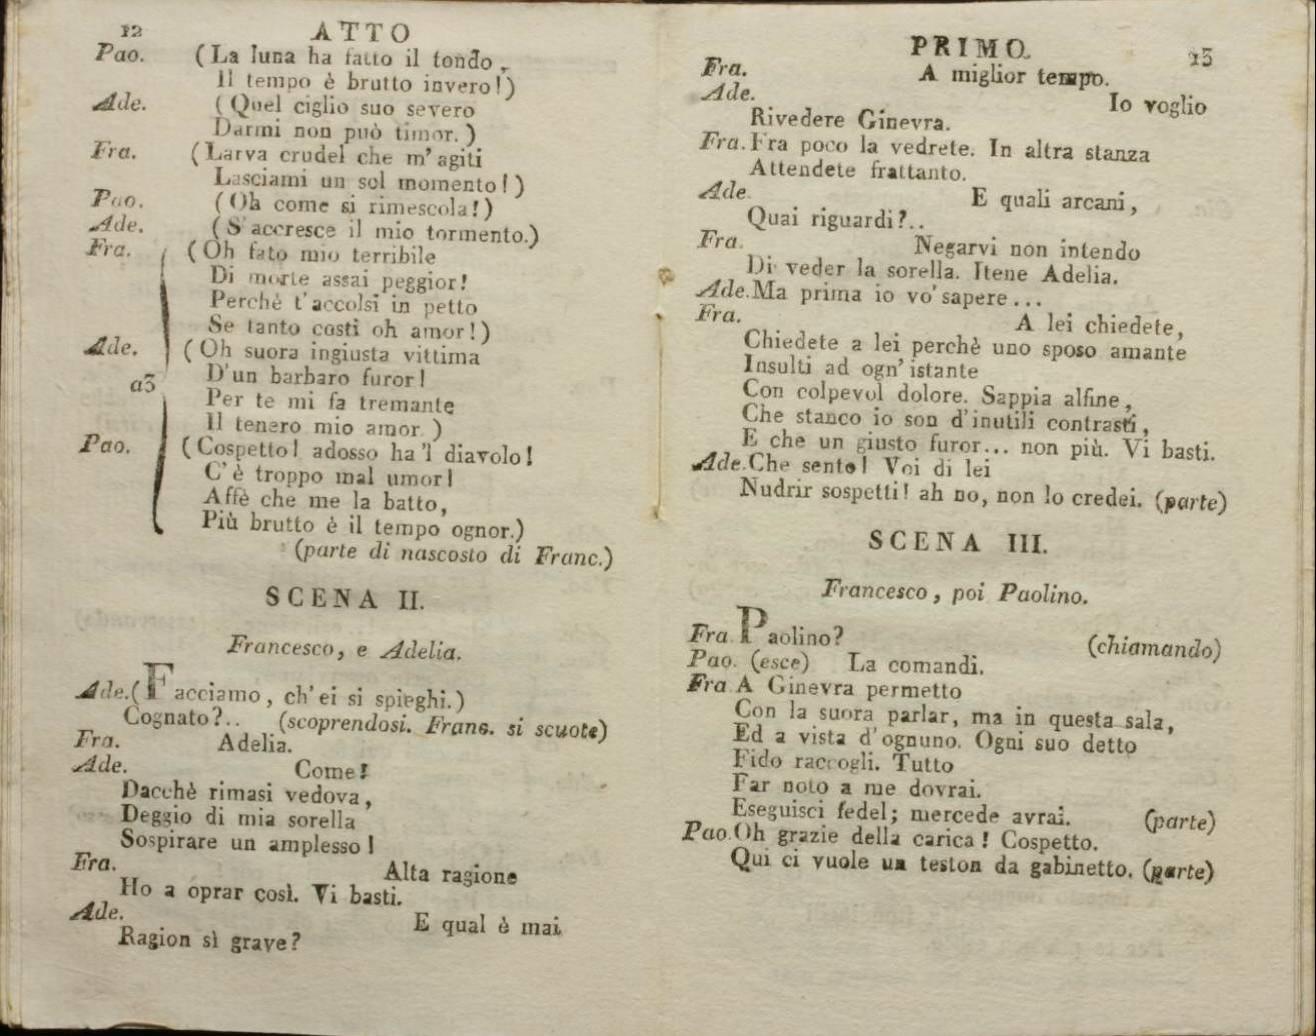 12 ATTO
Pao. (La luna ha fatto il tondo,
Il tempo è brutto invero!)
Ade. (Quel ciglio suo severo
Darmi non può timor.)
Fra. (Larva crudel che m'agiti
Lasciami un sol momento!)
Pao. (Oh come si rimescola!)
Ade. (S'accresce il mio tormento.)
Fra. (Oh fato mio terribile
Di morte assai peggior!
Perchè t'accolsi in petto
Se tanto costi oh amor!)
Ade. (Oh suora ingiusta vittima
a3 D'un barbaro furor!
Per te mi fa tremante
Il tenero mio amor.)
Pao. (Cospetto! adosso ha'l diavolo!
C'è troppo mal umor!
Affè che me la batto,
Più brutto è il tempo ognor.)
(parte di nascosto di Franc.)
SCENA II.
Francesco, e Adelia.
Ade. (Facciamo, ch'ei si spieghi.)
Cognato?.. (scoprendosi. Franc. si scuote)
Fra. Adelia.
Ade. Come!
Dacchè rimasi vedova,
Deggio di mia sorella
Sospirare un amplesso!
Fra. Alta ragione
Ho a oprar così. Vi basti.
Ade. E qual è mai
Ragion sì grave?
PRIMO. 13
Fra. A miglior tempo.
Ade. Io voglio
Rivedere Ginevra.
Fra. Fra poco la vedrete. In altra stanza
Attendete frattanto.
Ade. E quali arcani,
Quai riguardi?..
Fra. Negarvi non intendo
Di veder la sorella. Itene Adelia.
Ade. Ma prima io vo' sapere...
Fra. A lei chiedete,
Chiedete a lei perchè uno sposo amante
Insulti ad ogn'istante
Con colpevol dolore. Sappia alfine,
Che stanco io son d'inutili contrasti,
E che un giusto furor... non più. Vi basti.
Ade. Che sento! Voi di lei
Nudrir sospetti! ah no, non lo credei. (parte)
SCENA III.
Francesco, poi Paolino.
Fra. Paolino? (chiamando)
Pao. (esce) La comandi.
Fra. A Ginevra permetto
Con la suora parlar, ma in questa sala,
Ed a vista d'ognuno. Ogni suo detto
Fido raccogli. Tutto
Far noto a me dovrai.
Eseguisci fedel; mercede avrai. (parte)
Pao. Oh grazie della carica! Cospetto.
Qui ci vuole un teston da gabinetto. (parte)